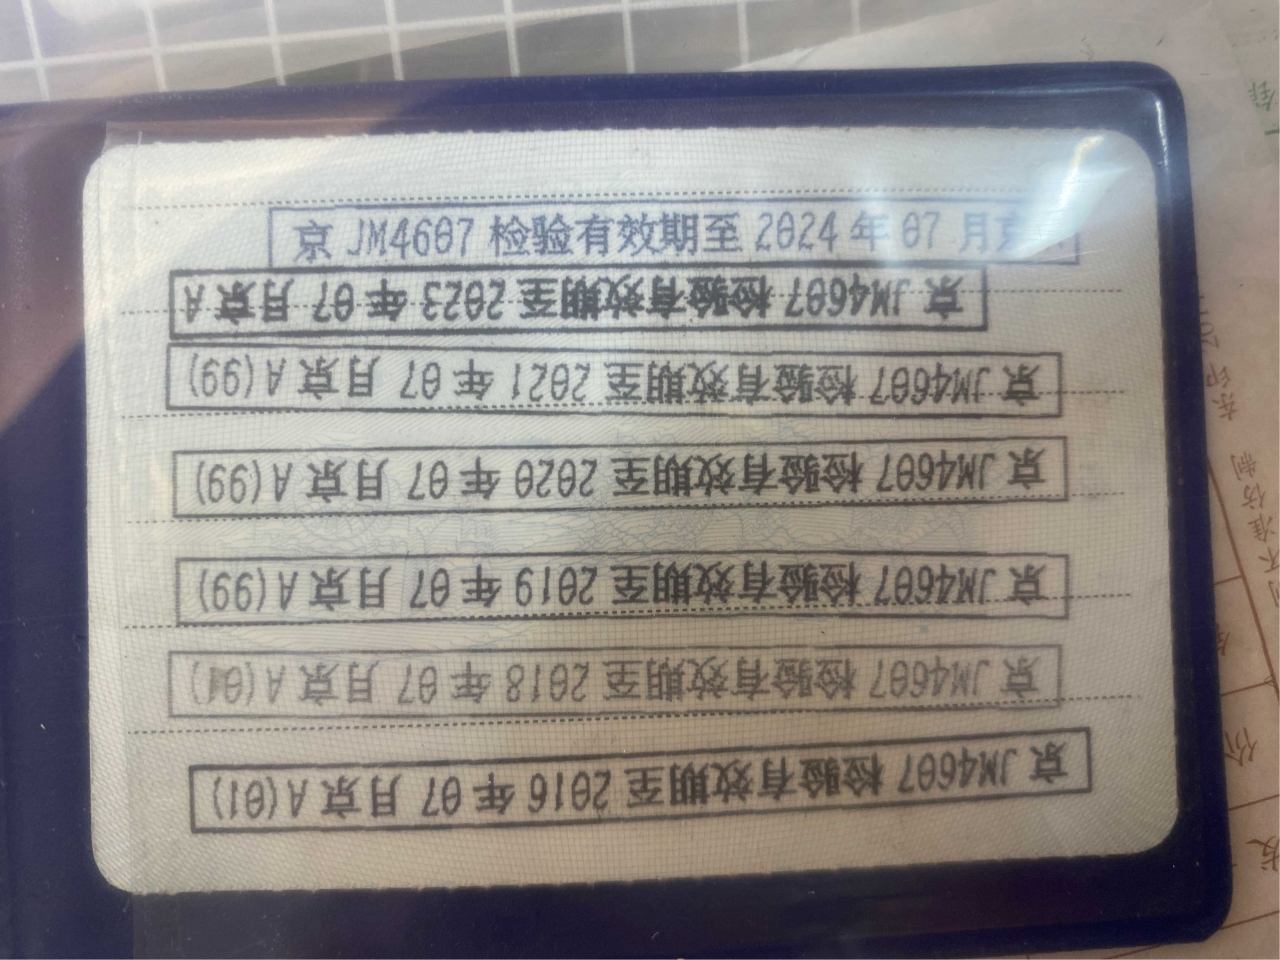 京 JM4607 检验有效期至 2024 年 07 月京
京 JM4607 检验有效期至 2023 年 07 月京 A
京 JM4607 检验有效期至 2021 年 07 月京 A (99)
京 JM4607 检验有效期至 2020 年 07 月京 A (99)
京 JM4607 检验有效期至 2019 年 07 月京 A (99)
京 JM4607 检验有效期至 2018 年 07 月京 A
京 JM4607 检验有效期至 2016 年 07 月京 A (01)
不准仿制